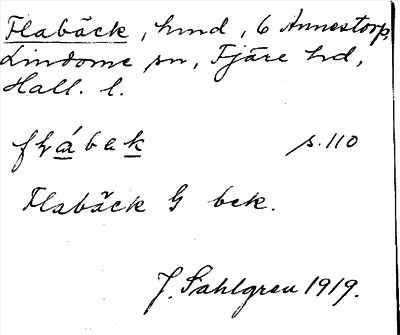 Flabäck, hmd, 6 Annestorp,
Lindome sn, Fjäre hd,
Hall. l.
flábek s. 110
Flabäck G bek.
J. Sahlgren 1919.